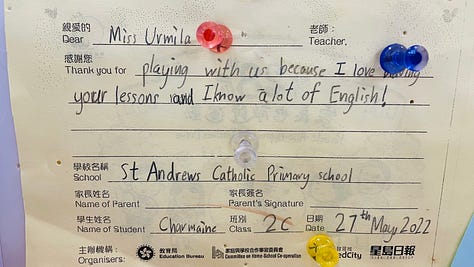 親愛的 老師：
Dear Miss Urmila Teacher,
感謝您
Thank you for playing with us because I love
your lessons and I know a lot of English!
學校名稱
School St Andrews Catholic Primary school
家長姓名 家長簽名
Name of Parent Parent's Signature
學生姓名 班別 日期
Name of Student Charmaine Class 2C Date 27th May 2022
主辦機構：教育局 家庭與學校合作事宜委員會 星島日報
Organisers: Education Bureau Committee on Home-School Co-operation edCity